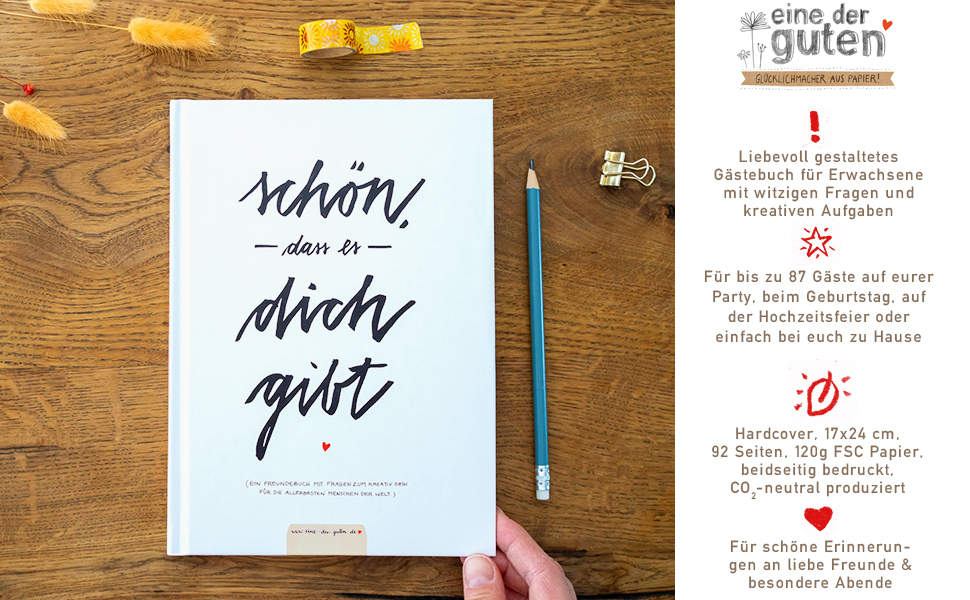 schön,
— dass es —
dich
gibt
(EIN FREUNDEBUCH MIT FRAGEN ZUM KREATIV SEIN
FÜR DIE ALLERBESTEN MENSCHEN DER WELT)
www.eine-der-guten.de
eine der
guten
GLÜCKLICHMACHER AUS PAPIER!
!
Liebevoll gestaltetes
Gästebuch für Erwachsene
mit witzigen Fragen und
kreativen Aufgaben
Für bis zu 87 Gäste auf eurer
Party, beim Geburtstag, auf
der Hochzeitsfeier oder
einfach bei euch zu Hause
Hardcover, 17x24 cm,
92 Seiten, 120g FSC Papier,
beidseitig bedruckt,
CO₂-neutral produziert
Für schöne Erinnerun-
gen an liebe Freunde &
besondere Abende